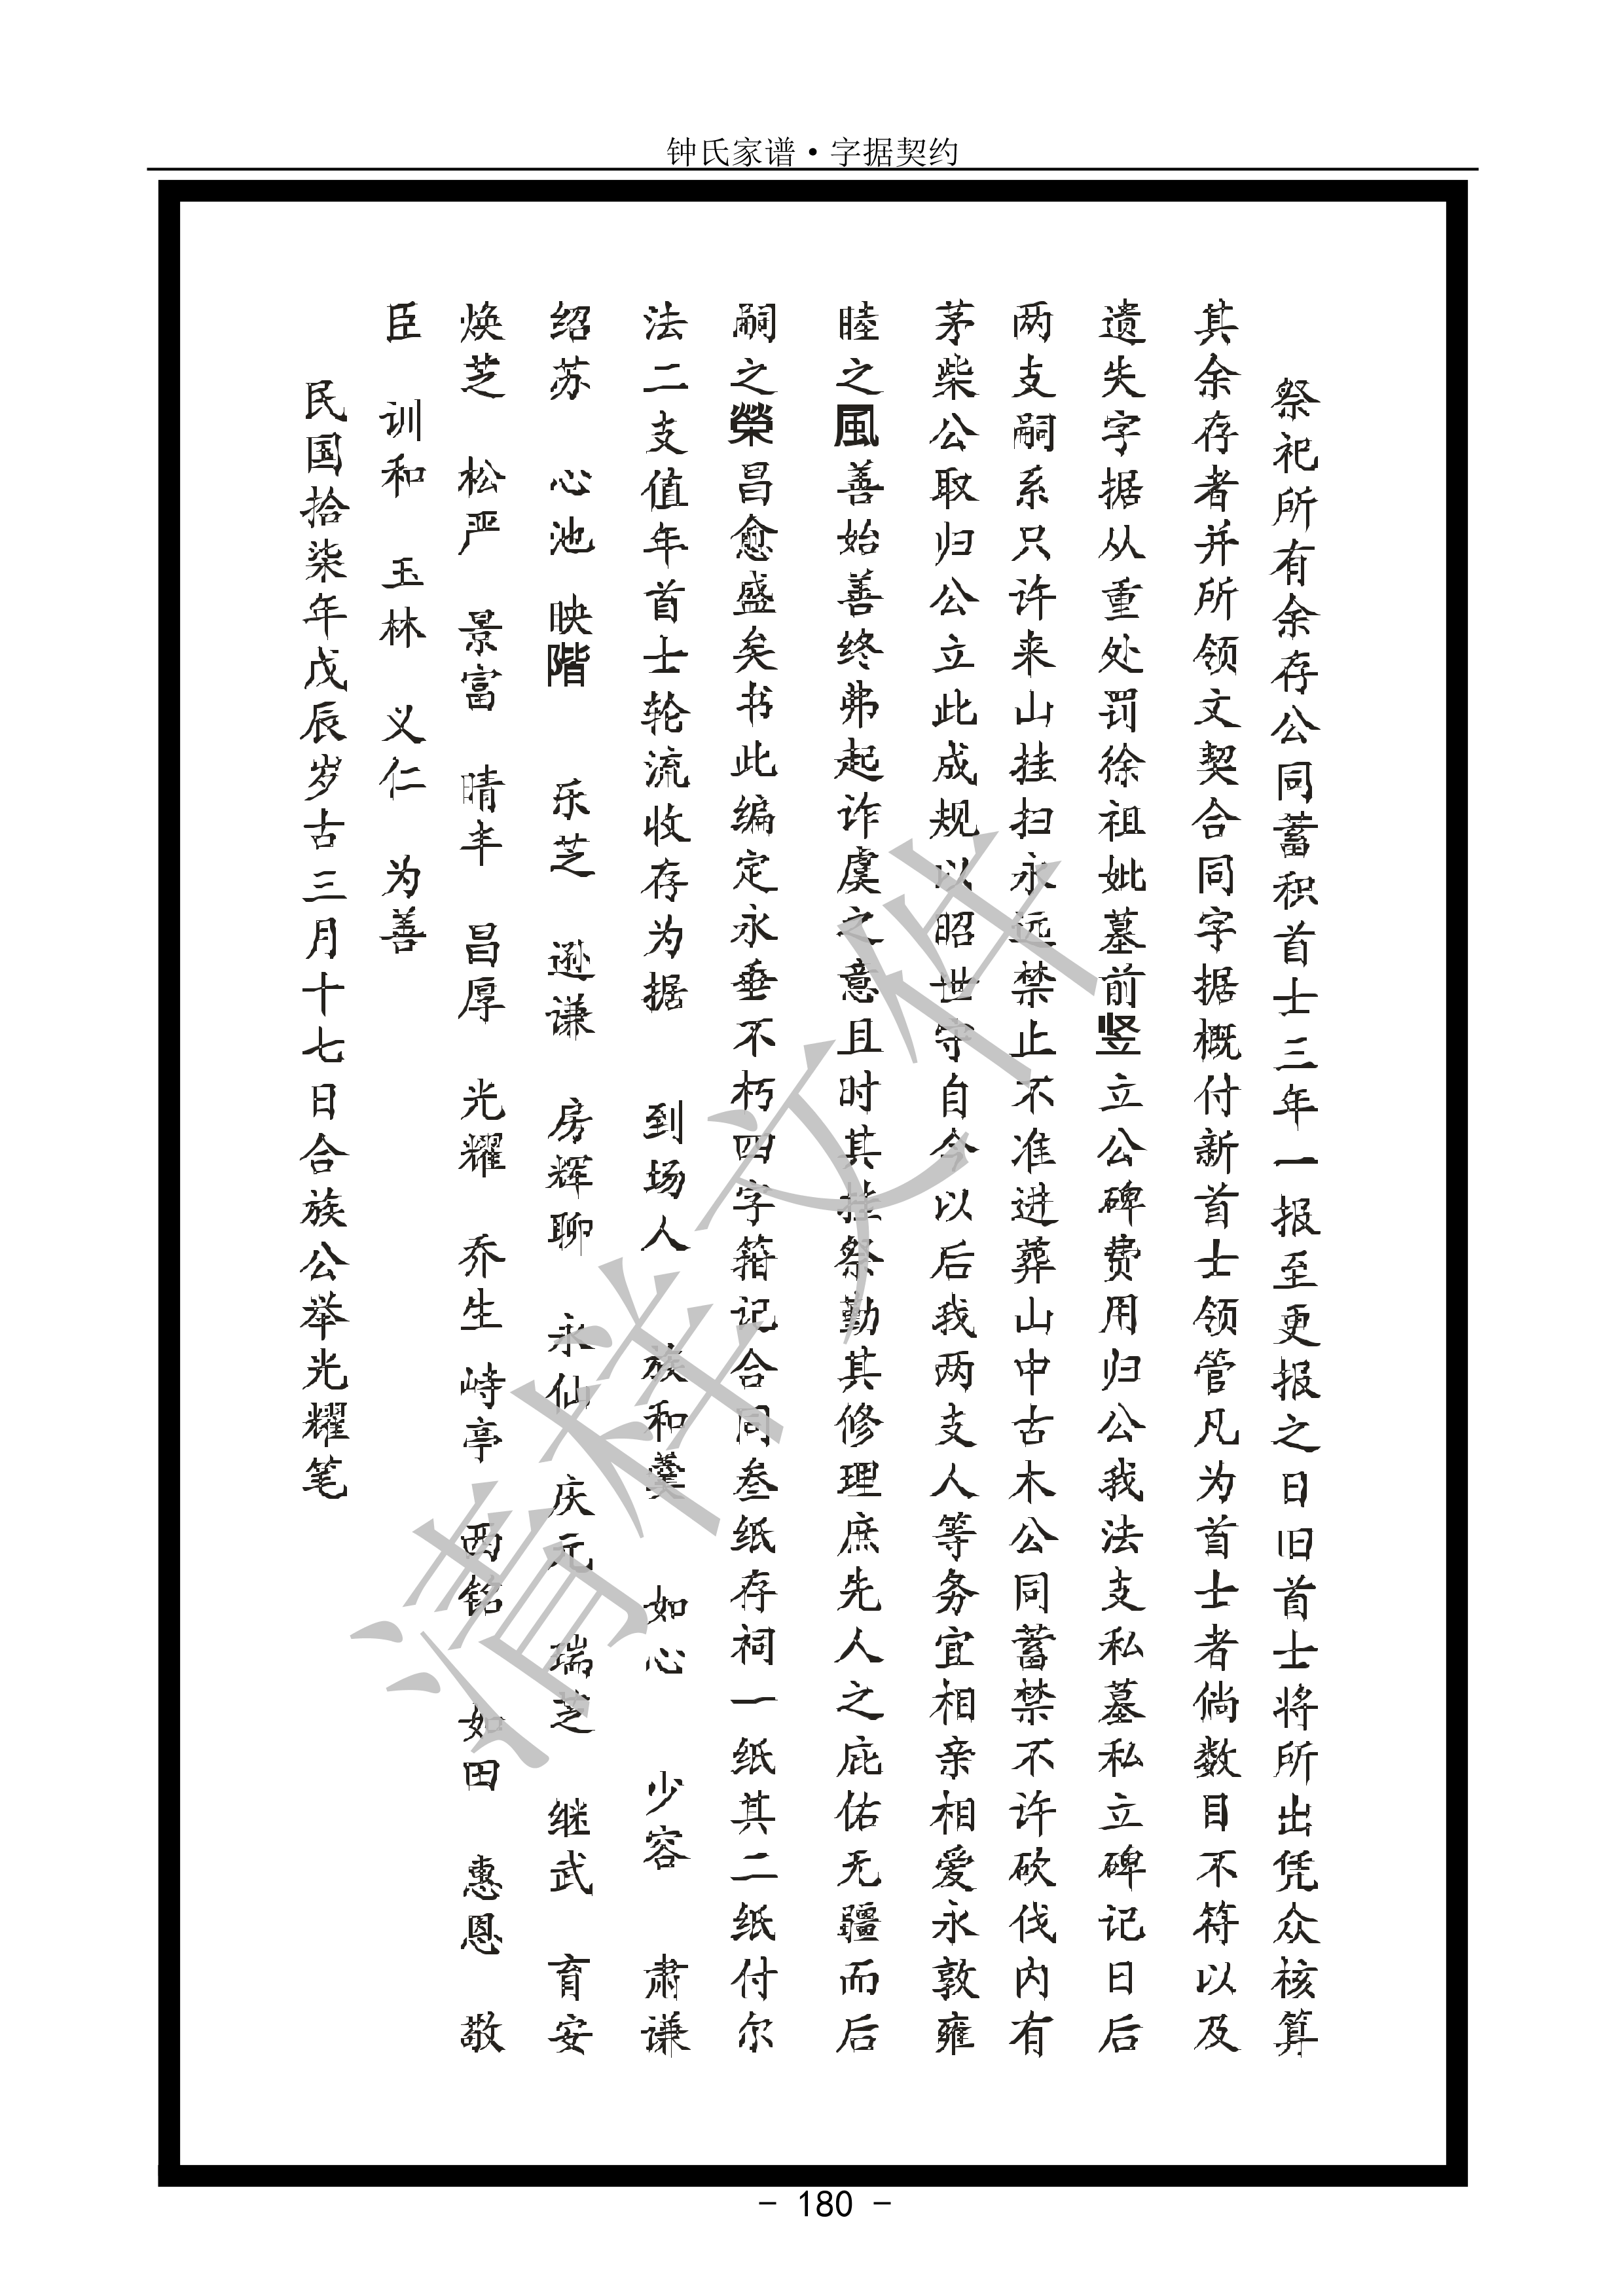 钟氏家谱·字据契约
祭祀所有余存公同蓄积首士三年一报至更报之日旧首士将所出凭众核算
其余存者并所领文契合同字据概付新首士领管凡为首士者倘数目不符以及
遗失字据从重处罚徐祖妣墓前竖立公碑费用归公我法支私墓私立碑记日后
两支嗣系只许来山挂扫永远禁止不准进葬山中古木公同蓄禁不许砍伐内有
茅柴公取归公立此成规以昭世守自今以后我两支人等务宜相亲相爱永敦雍
睦之風善始善终弗起诈虞之意且时其挂祭勤其修理庶先人之庇佑无疆而后
嗣之榮昌愈盛矣书此编定永垂不朽四字箝记合同叁纸存祠一纸其二纸付尔
法二支值年首士轮流收存为据 到场人 族和羹 如心 少容 肃谦
绍苏 心池 映階 乐芝 逊谦 房辉聊 永仙 庆元 瑞芝 继武 育安
焕芝 松严 景富 晴丰 昌厚 光耀 乔生 峙亭 西铭 如田 惠恩 敬
臣 训和 玉林 义仁 为善
民国拾柒年戊辰岁古三月十七日合族公举光耀笔
清样文件
- 180 -